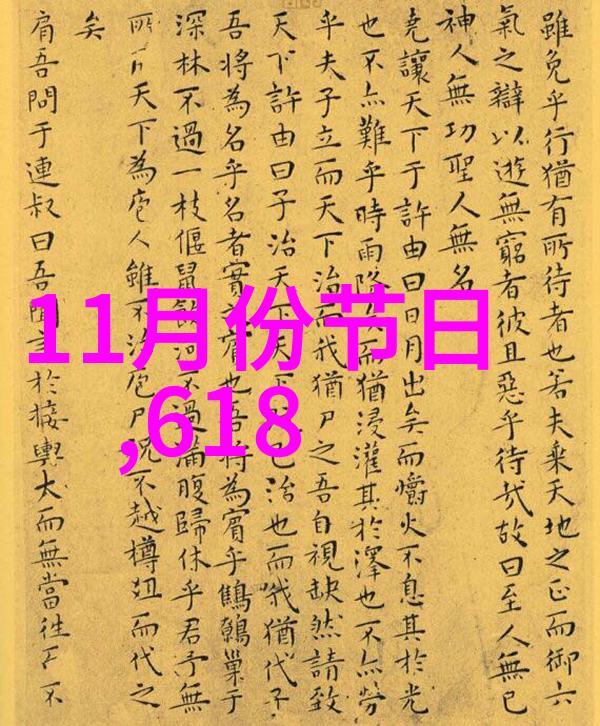 雖免乎行猶有所待者也若夫乘天地之正而御六
氣之辯以遊無窮者彼且惡乎待哉故曰至人無己
神人無功聖人無名
堯讓天下于許由曰日月出矣而爝火不息其於光
也不亦難乎時雨降矣而猶浸灌其於澤也不亦勞
乎夫子立而天下治而我猶尸之吾自視缺然請致
天下許由曰子治天下天下已治也而我猶代子
吾將為名乎名者實之賓也吾將為賓乎鷦鷯巢于
深林不過一枝偃鼠飲河不過滿腹歸休乎君予無
所天下為庖人雖不治庖尸祝不越樽俎而代之
矣
肩吾問于連叔曰吾聞言於接輿大而無當往而不
11月份节日
,618